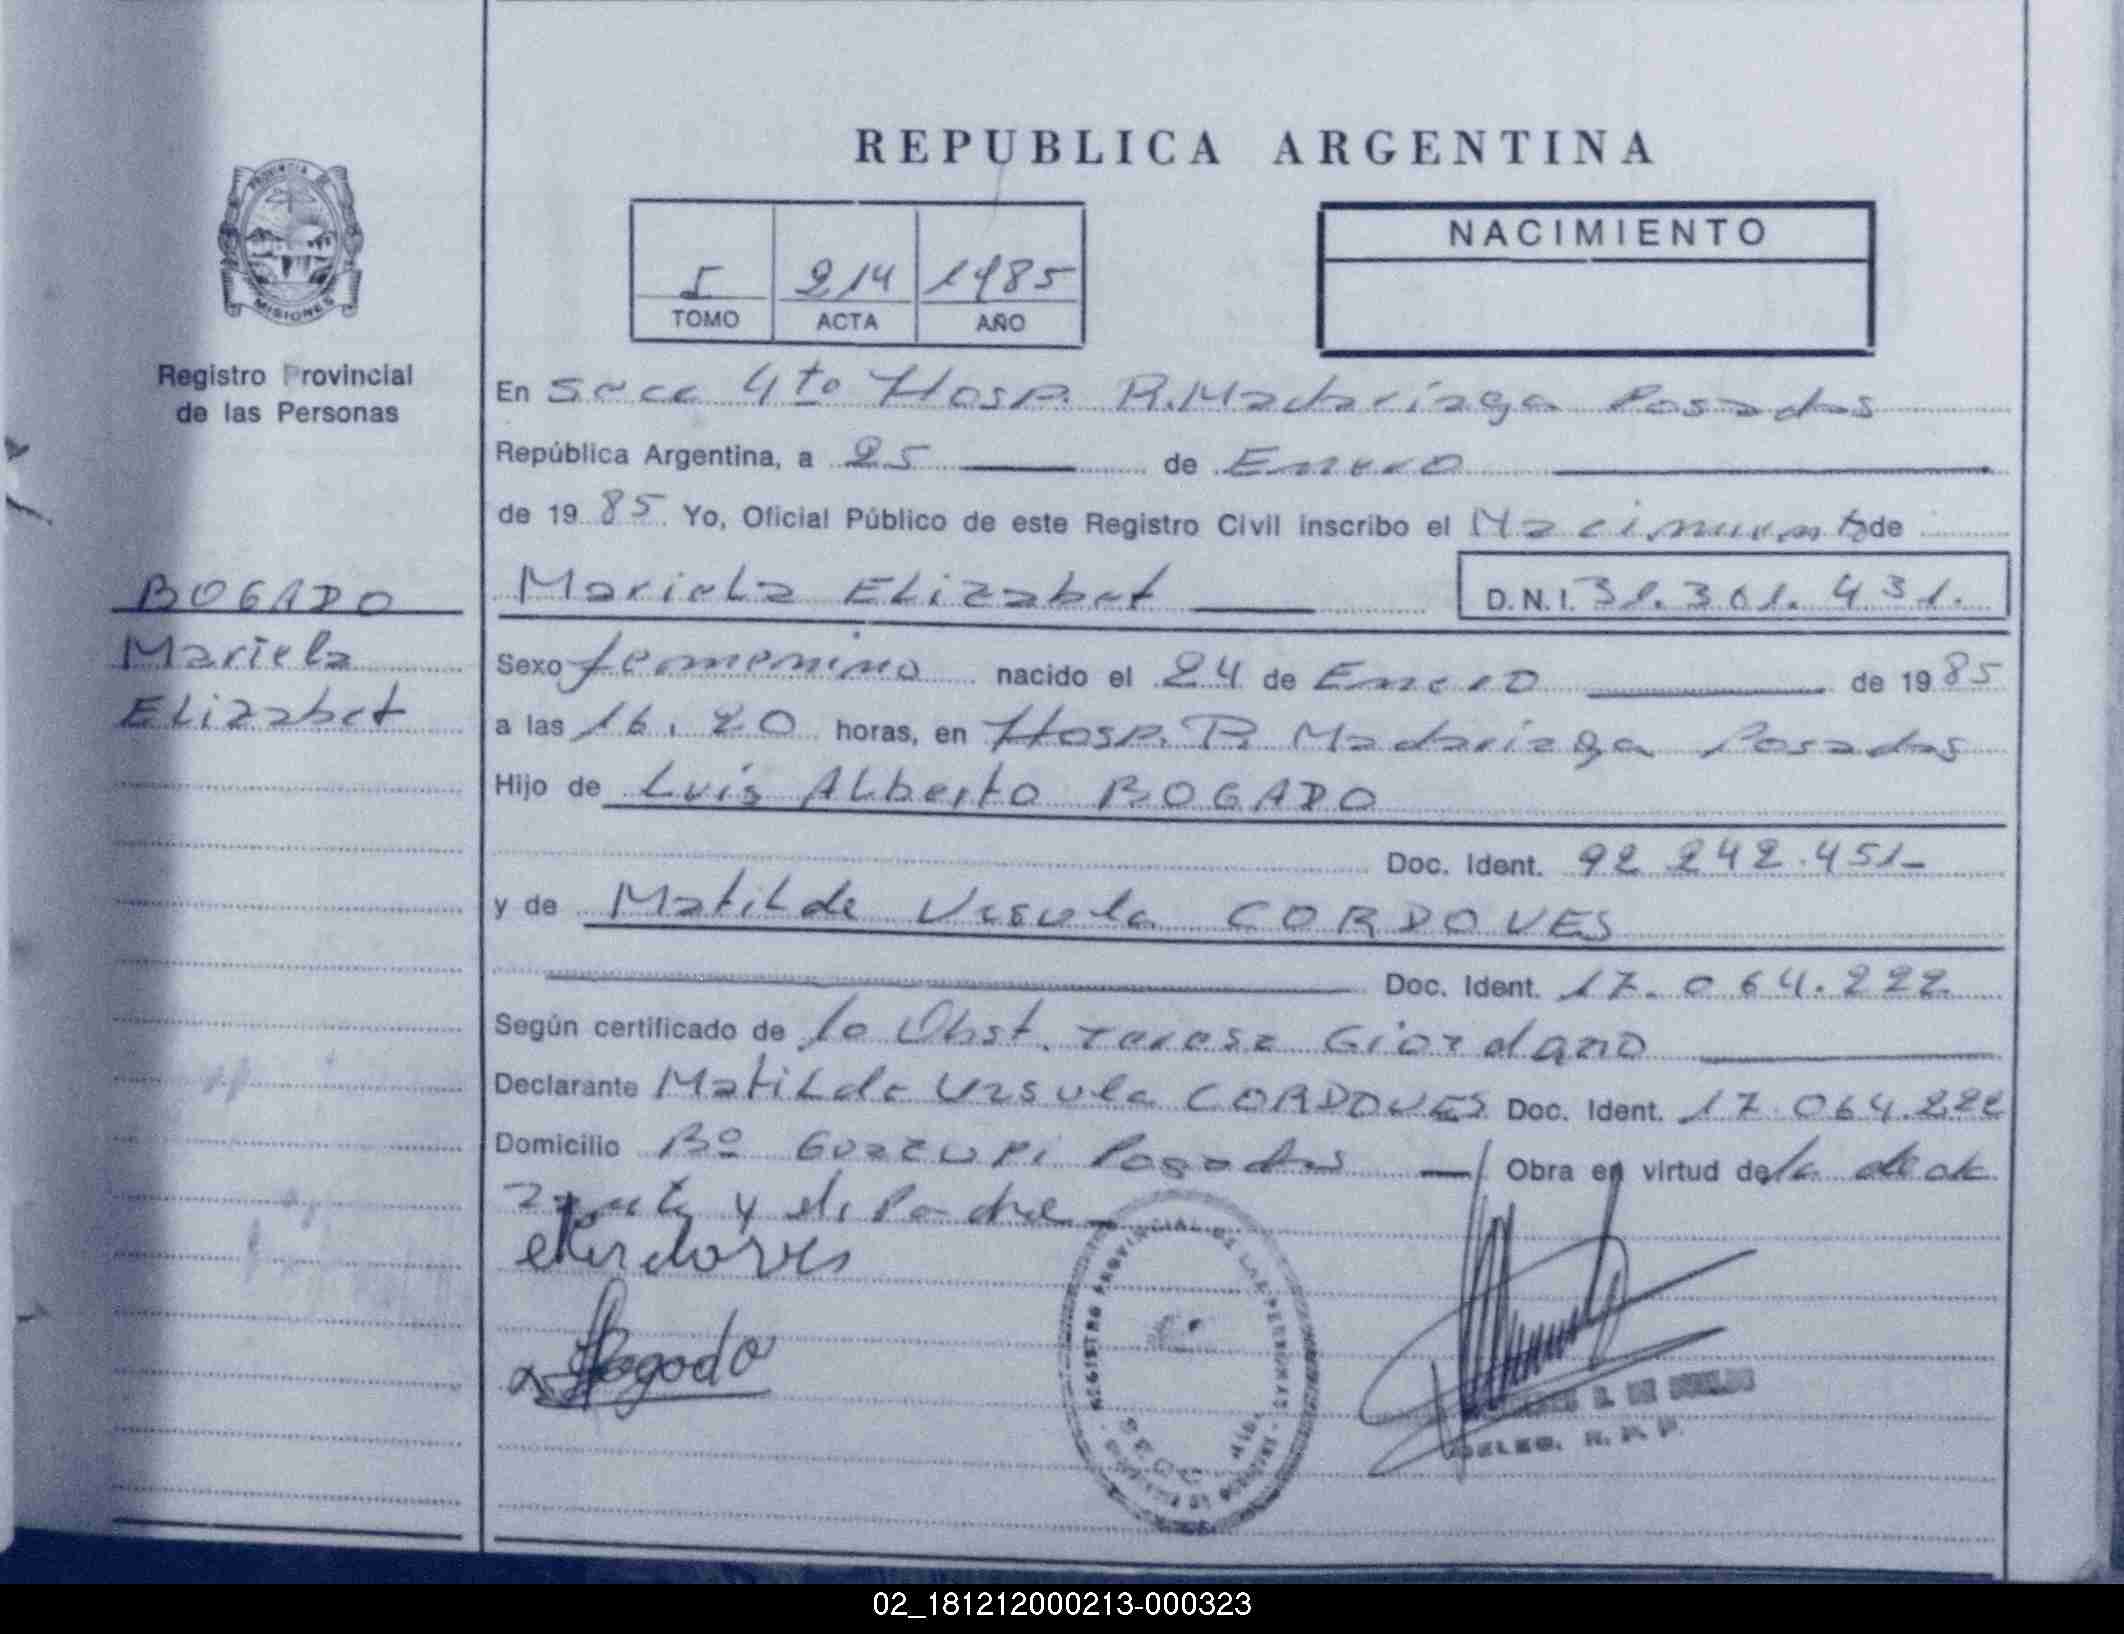 REPUBLICA ARGENTINA
PROVINCIA DE
MISIONES
Registro Provincial
de las Personas
I 214 1985
TOMO ACTA AÑO
NACIMIENTO
En Secc 4to Hosp. R. Madariaga Posadas
República Argentina, a 25 de Enero
de 1985 Yo, Oficial Público de este Registro Civil inscribo el Nacimiento de
BOGADO
Mariela
Elizabet
Mariela Elizabet D.N.I. 31.301.431.
Sexo femenino nacido el 24 de Enero de 1985
a las 16.20 horas, en Hosp. R. Madariaga Posadas
Hijo de Luis Alberto BOGADO
Doc. Ident. 92 242.451-
y de Matilde Ursula CORDOVES
Doc. Ident. 17.064.222
Según certificado de la Obst. Teresa Giordano
Declarante Matilde Ursula CORDOVES Doc. Ident. 17.064.222
Domicilio Bº Guacupi Posadas Obra en virtud de la de ok
y del Padre
Bogado
REGISTRO PROVINCIAL DE LAS PERSONAS
SECC.
DE
DELEG. R. P. P.
02_181212000213-000323